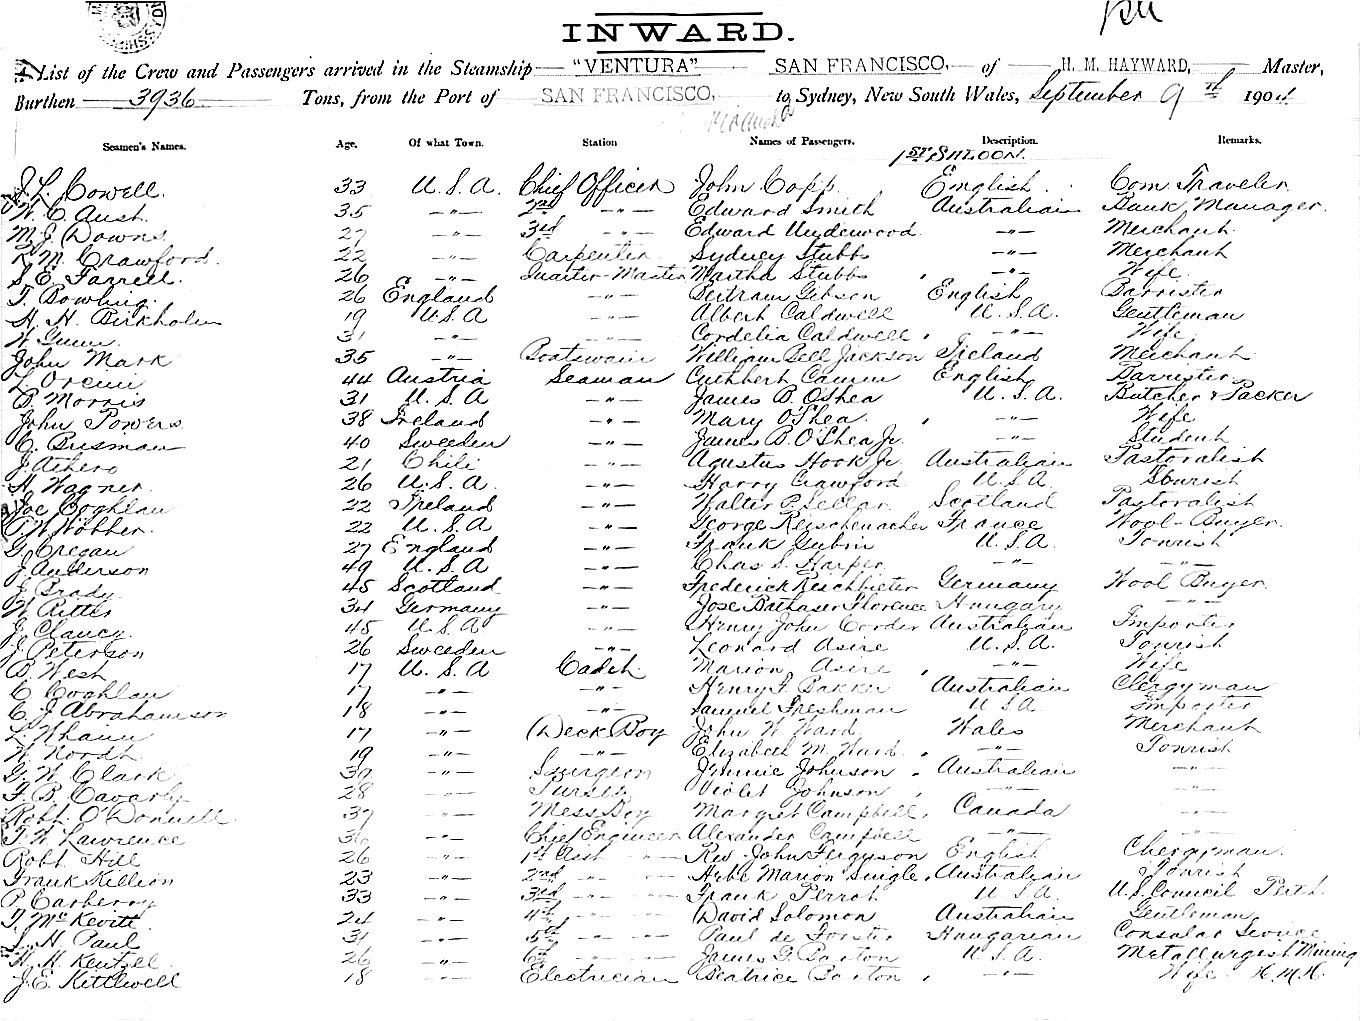 INWARD.
List of the Crew and Passengers arrived in the Steamship "VENTURA" SAN FRANCISCO, of H. M. HAYWARD, Master,
Burthen 3936 Tons, from the Port of SAN FRANCISCO, to Sydney, New South Wales, September 9th 1904
Seamen's Names. Age. Of what Town. Station Names of Passengers. Description. Remarks.
1ST SALOON.
J. L. Cowell. 33 U.S.A. Chief Officer John Copp. English. Com. Traveler
W. C. Aust. 35 -"- 2nd -"- Edward Smith Australian Bank Manager.
M. J. Downs. 27 -"- 3rd -"- Edward Underwood. -"- Merchant.
R. M. Crawford. 22 -"- Carpenter Sydney Stubbs -"- Merchant
S. E. Farrell. 26 -"- Quarter-Master Martha Stubbs -"- Wife
T. Bowling. 26 England -"- Bertram Gibson English Barrister
H. H. Birkholm 19 U.S.A -"- Albert Caldwell U.S.A. Gentleman
W. Gunn. 31 -"- -"- Cordelia Caldwell -"- Wife
John Mark 35 -"- Boatswain William Bell Jackson Ireland Merchant
44 Austria Seaman Cuthbert English Barrister
B. Morris 31 U.S.A -"- James B. O'Shea U.S.A. Butcher & Packer
John Powers 38 Ireland -"- Mary O'Shea -"- Wife
C. Busman 40 Sweeden -"- James B. O'Shea Jr. -"- Student
J. Athero 21 Chili -"- Agustus Hook Jr. Australian Pastoralist
H. Wagner. 26 U.S.A. -"- Harry Crawford U.S.A. Tourist
Joe Coghlan 22 Ireland -"- Walter P. Sellar Scotland Pastoralist
P. W. Wobber. 22 U.S.A -"- George Reischenacher France Wool-Buyer.
G. Cregan 27 England -"- Frank Gubin U.S.A. Tourist
J. Anderson 49 U.S.A -"- Chas S. Harper -"- -"-
J. Brady. 45 Scotland -"- Frederick Reichbieter Germany Wool Buyer.
W. Ritter 34 Germany -"- Josef Balthaser Florence Hungary -"-
J. Clancy. 45 U.S.A -"- Henry John Corder Australian Importer
J. Peterson 26 Sweeden -"- Leonard Asire U.S.A. Tourist
B. West 17 U.S.A Cadet. Marion Asire -"- Wife
C. Coghlan 17 -"- -"- Henry F. Bakker Australian Clergyman
C. J. Abrahamson 18 -"- -"- Samuel Freshman U.S.A. Importer
L. Whann 17 -"- Deck Boy John W. Ward Wales Merchant
W. North. 19 -"- -"- Elizabeth M. Ward -"- Tourist
G. W. Clark 37 -"- Surgeon Jennie Johnson Australian -"-
F. B. Cavarly 28 -"- Purser Violet Johnson -"-
Robt. O'Donnell. 37 -"- Mess Boy Margret Campbell Canada -"-
T. W. Lawrence 36 -"- Chief Engineer Alexander Campbell -"- -"-
Robt. Hill 26 -"- 1st Asst -"- Rev. John Ferguson English Clergyman.
Frank Killion 23 -"- 2nd -"- -"- Hebe Marion Single Australian Tourist
P. Carberry 33 -"- 3rd -"- -"- Frank Perrot U.S.A. U.S. Council Perth.
T. McKevitt 24 -"- 4th -"- -"- David Solomon Australian Gentleman
L. H. Paul 31 -"- 5th -"- -"- Paul de Forster Hungarian Consular Service
H. M. Kentzel. 26 -"- 6th -"- -"- James G. Barton U.S.A. Metallurgest Mining
J. E. Kittlewell 18 -"- Electrician Beatrice Barton -"- Wife H.M.H.